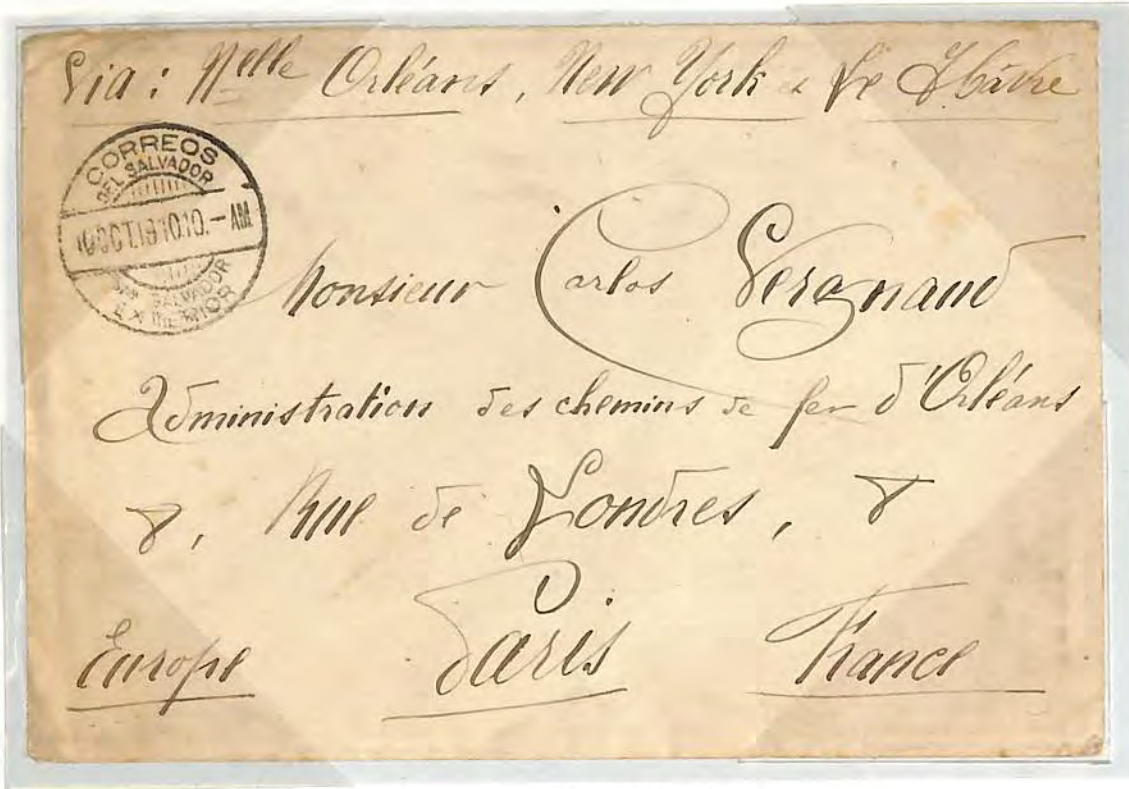 Via : Nelle Orléans, New York & Le Hâvre
CORREOS
DEL SALVADOR
10 OCT.19 10.10.- AM
SAN SALVADOR
EXTERIOR
Monsieur Carlos Vergnaud
Administration des chemins de fer d'Orléans
8, Rue de Londres, 8
Paris
Europe France